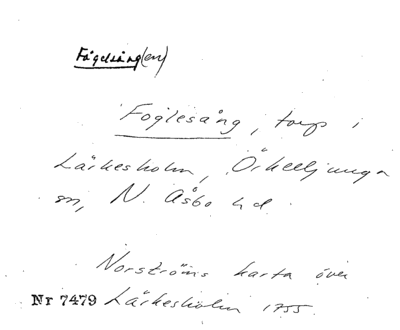 Fågelsång(en)
Foglesång, torp i
Lärkesholm, Örkelljunga
sn, N. Åsbo hd.
Norströms karta över
Nr 7479 Lärkesholm 1755.